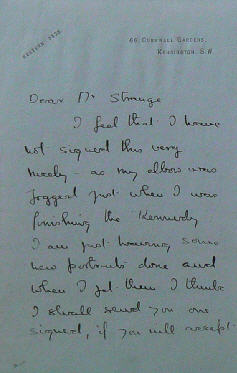 66, Cornwall Gardens,
Kensington, S.W.
Dear Mr Strange
I feel that I have
not signed this very
nicely - as my elbow was
jogged just when I was
finishing the Kennedy
I am just having some
new portraits done and
when I get them I think
I shall send you one
signed, if you will accept